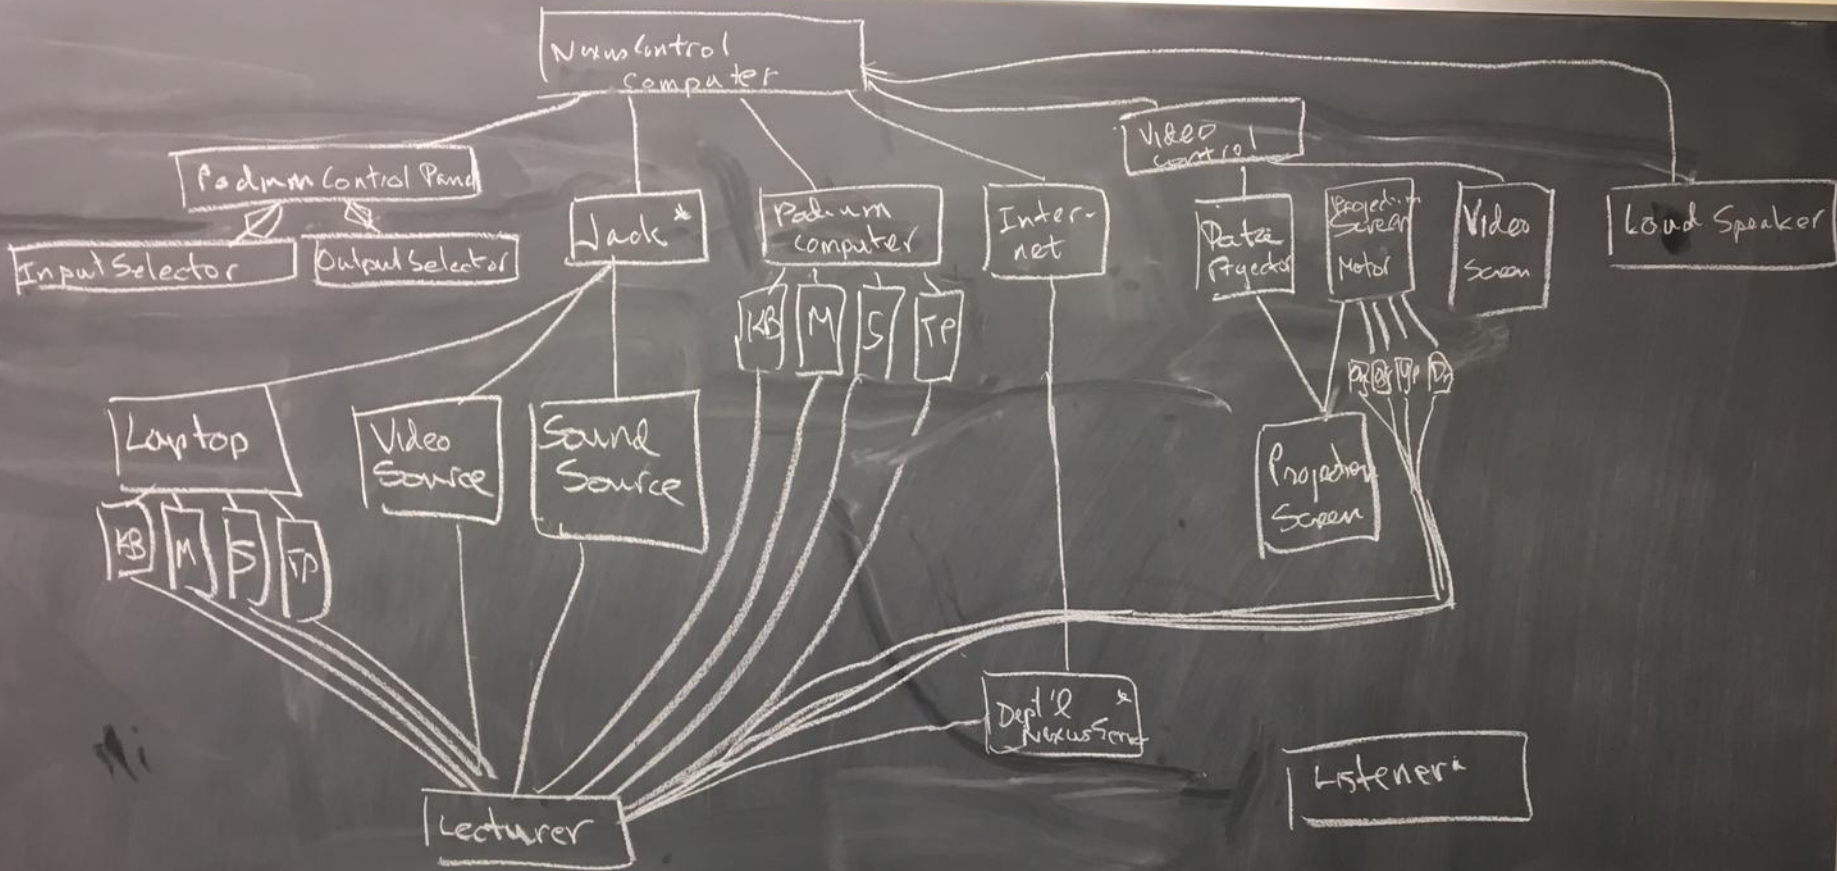 Nexus Control
Computer
Podium Control Panel
Input Selector
Output Selector
Jack *
Podium
Computer
Inter-
net
Video
Control
Data
Projector
Projection
Screen
Motor
Video
Screen
Loud Speaker
KB
M
S
TP
On
Up
Dn
Laptop
Video
Source
Sound
Source
Projection
Screen
KB
M
S
TP
Dept'l *
Nexus Server
Listener *
Lecturer